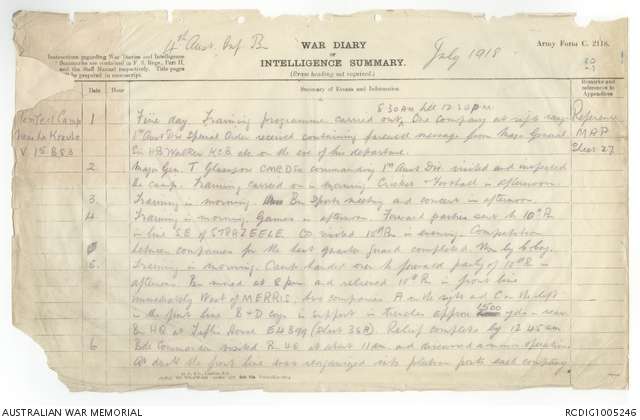 4th Aust Inf Bn
WAR DIARY
OR
INTELLIGENCE SUMMARY.
(Erase heading not required.)
July 1918
Army Form C. 2118.
Instructions regarding War Diaries and Intelligence
Summaries are contained in F. S. Regs., Part II.
and the Staff Manual respectively. Title pages
will be prepared in manuscript.
Date Hour Summary of Events and Information
Remarks and
references to
Appendices
8.30am till 12.30pm
Tent Camp 1 Fine day. Training programme carried out. One company at rifle range
1st Aust Div Special Order received containing farewell message from Major General
Sir HB Walker KCB etc on the eve of his departure.
V 15 B 53
Reference
MAP
Sheet 27
2 Major Gen. T Glasgow CMG DSO commanding 1st Aust Div visited and inspected
the camp. Training carried on in morning. Cricket + Football in afternoon.
3 Training in morning. Bn Sports meeting and concert in afternoon.
4 Training in morning. Games in afternoon. Forward parties sent to 10th Bn
in line S.E. of STRAZEELE. CO visited 10th Bn in evening. Competition
between companies for the best quarter guard completed. Won by Coy.
5. Training in morning. Camp handed over to forward party of 10th Bn in
afternoon. Bn moved at 8 pm and relieved 10th Bn in front line
immediately West of MERRIS. two companies A on the right and C on the left
in the front line B + D coys in support in trenches approx 1500 yds in rear
Bn HQ at House E4 (Sheet 36A) Relief complete by 12.45 am
6 Bde Commander visited HQ at about 11am and discussed a minor operation
At dusk the front line was reorganised into platoon posts each company
AUSTRALIAN WAR MEMORIAL
RCDIG1005246